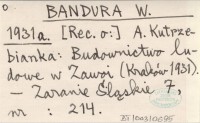 o
BANDURA W.
1931a. [Rec. o:] A. Kutrze-
bianka: Budownictwo lu-
dowe w Zawoi (Kraków 1931).
— Zaranie Śląskie 7,
nr : 214.